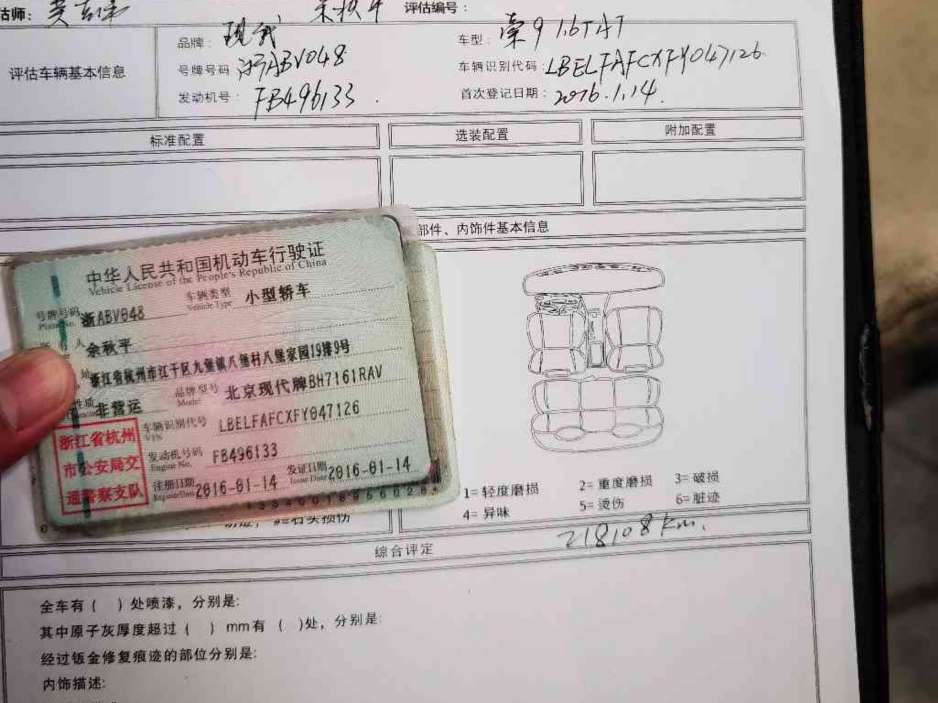 估师: 评估编号:
评估车辆基本信息
品牌: 现代 车型: 荣9 1.6TAT
号牌号码 浙ABV048 车辆识别代码: LBELFAFCXFY047126
发动机号: FB496133 首次登记日期: 2016.1.14.
标准配置 选装配置 附加配置
部件、内饰件基本信息
中华人民共和国机动车行驶证
Vehicle License of the People's Republic of China
号牌号码 浙ABV048 车辆类型 小型轿车
Plate No. Vehicle Type
人 余秋平
浙江省杭州市江干区九堡镇八堡村八堡家园19排9号
性质 非营运 品牌型号 北京现代牌BH7161RAV
Model
浙江省杭州
市公安局交
通警察支队
车辆识别代号 LBELFAFCXFY047126
VIN
发动机号码 FB496133
Engine No.
注册日期 2016-01-14 发证日期 2016-01-14
Register Date Issue Date
1=轻度磨损 2=重度磨损 3=破损
4=异味 5=烫伤 6=脏迹
218108km.
综合评定
全车有( )处喷漆，分别是:
其中原子灰厚度超过( )mm有( )处，分别是:
经过钣金修复痕迹的部位分别是:
内饰描述: